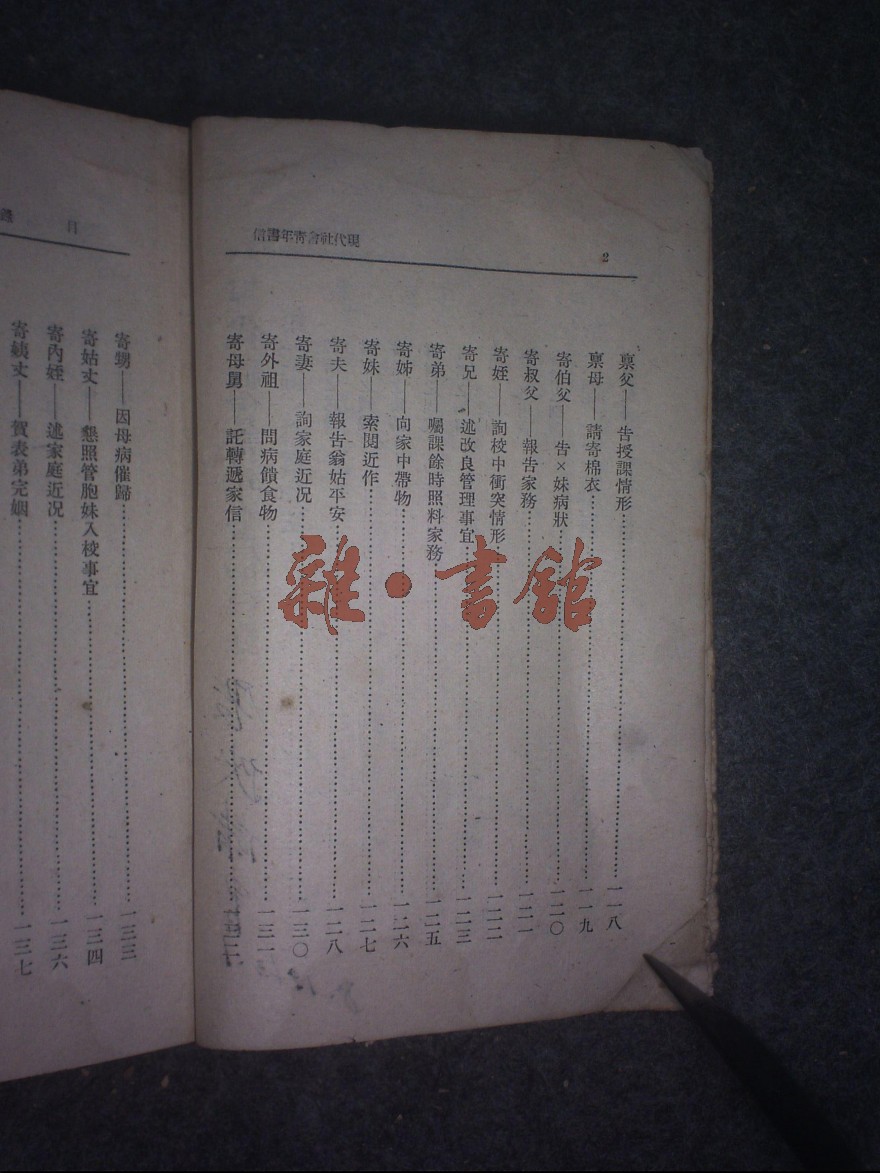 信書年青會社代現
2
稟父——告授課情形…………一一八
稟母——請寄棉衣…………一一九
寄伯父——告×妹病狀…………一二〇
寄叔父——報告家務…………一二一
寄姪——詢校中衝突情形…………一二二
寄兄——述改良管理事宜…………一二三
寄弟——囑課餘時照料家務…………一二五
寄姊——向家中帶物…………一二六
寄妹——索閱近作…………一二七
寄夫——報告翁姑平安…………一二八
寄妻——詢家庭近况…………一三〇
寄外祖——問病饋食物…………一三一
寄母舅——託轉遞家信…………一三二
目
寄甥——因母病催歸…………一三三
寄姑丈——懇照管胞妹入校事宜…………一三四
寄內姪——述家庭近况…………一三六
寄姨丈——賀表弟完姻…………一三七
雜·書館